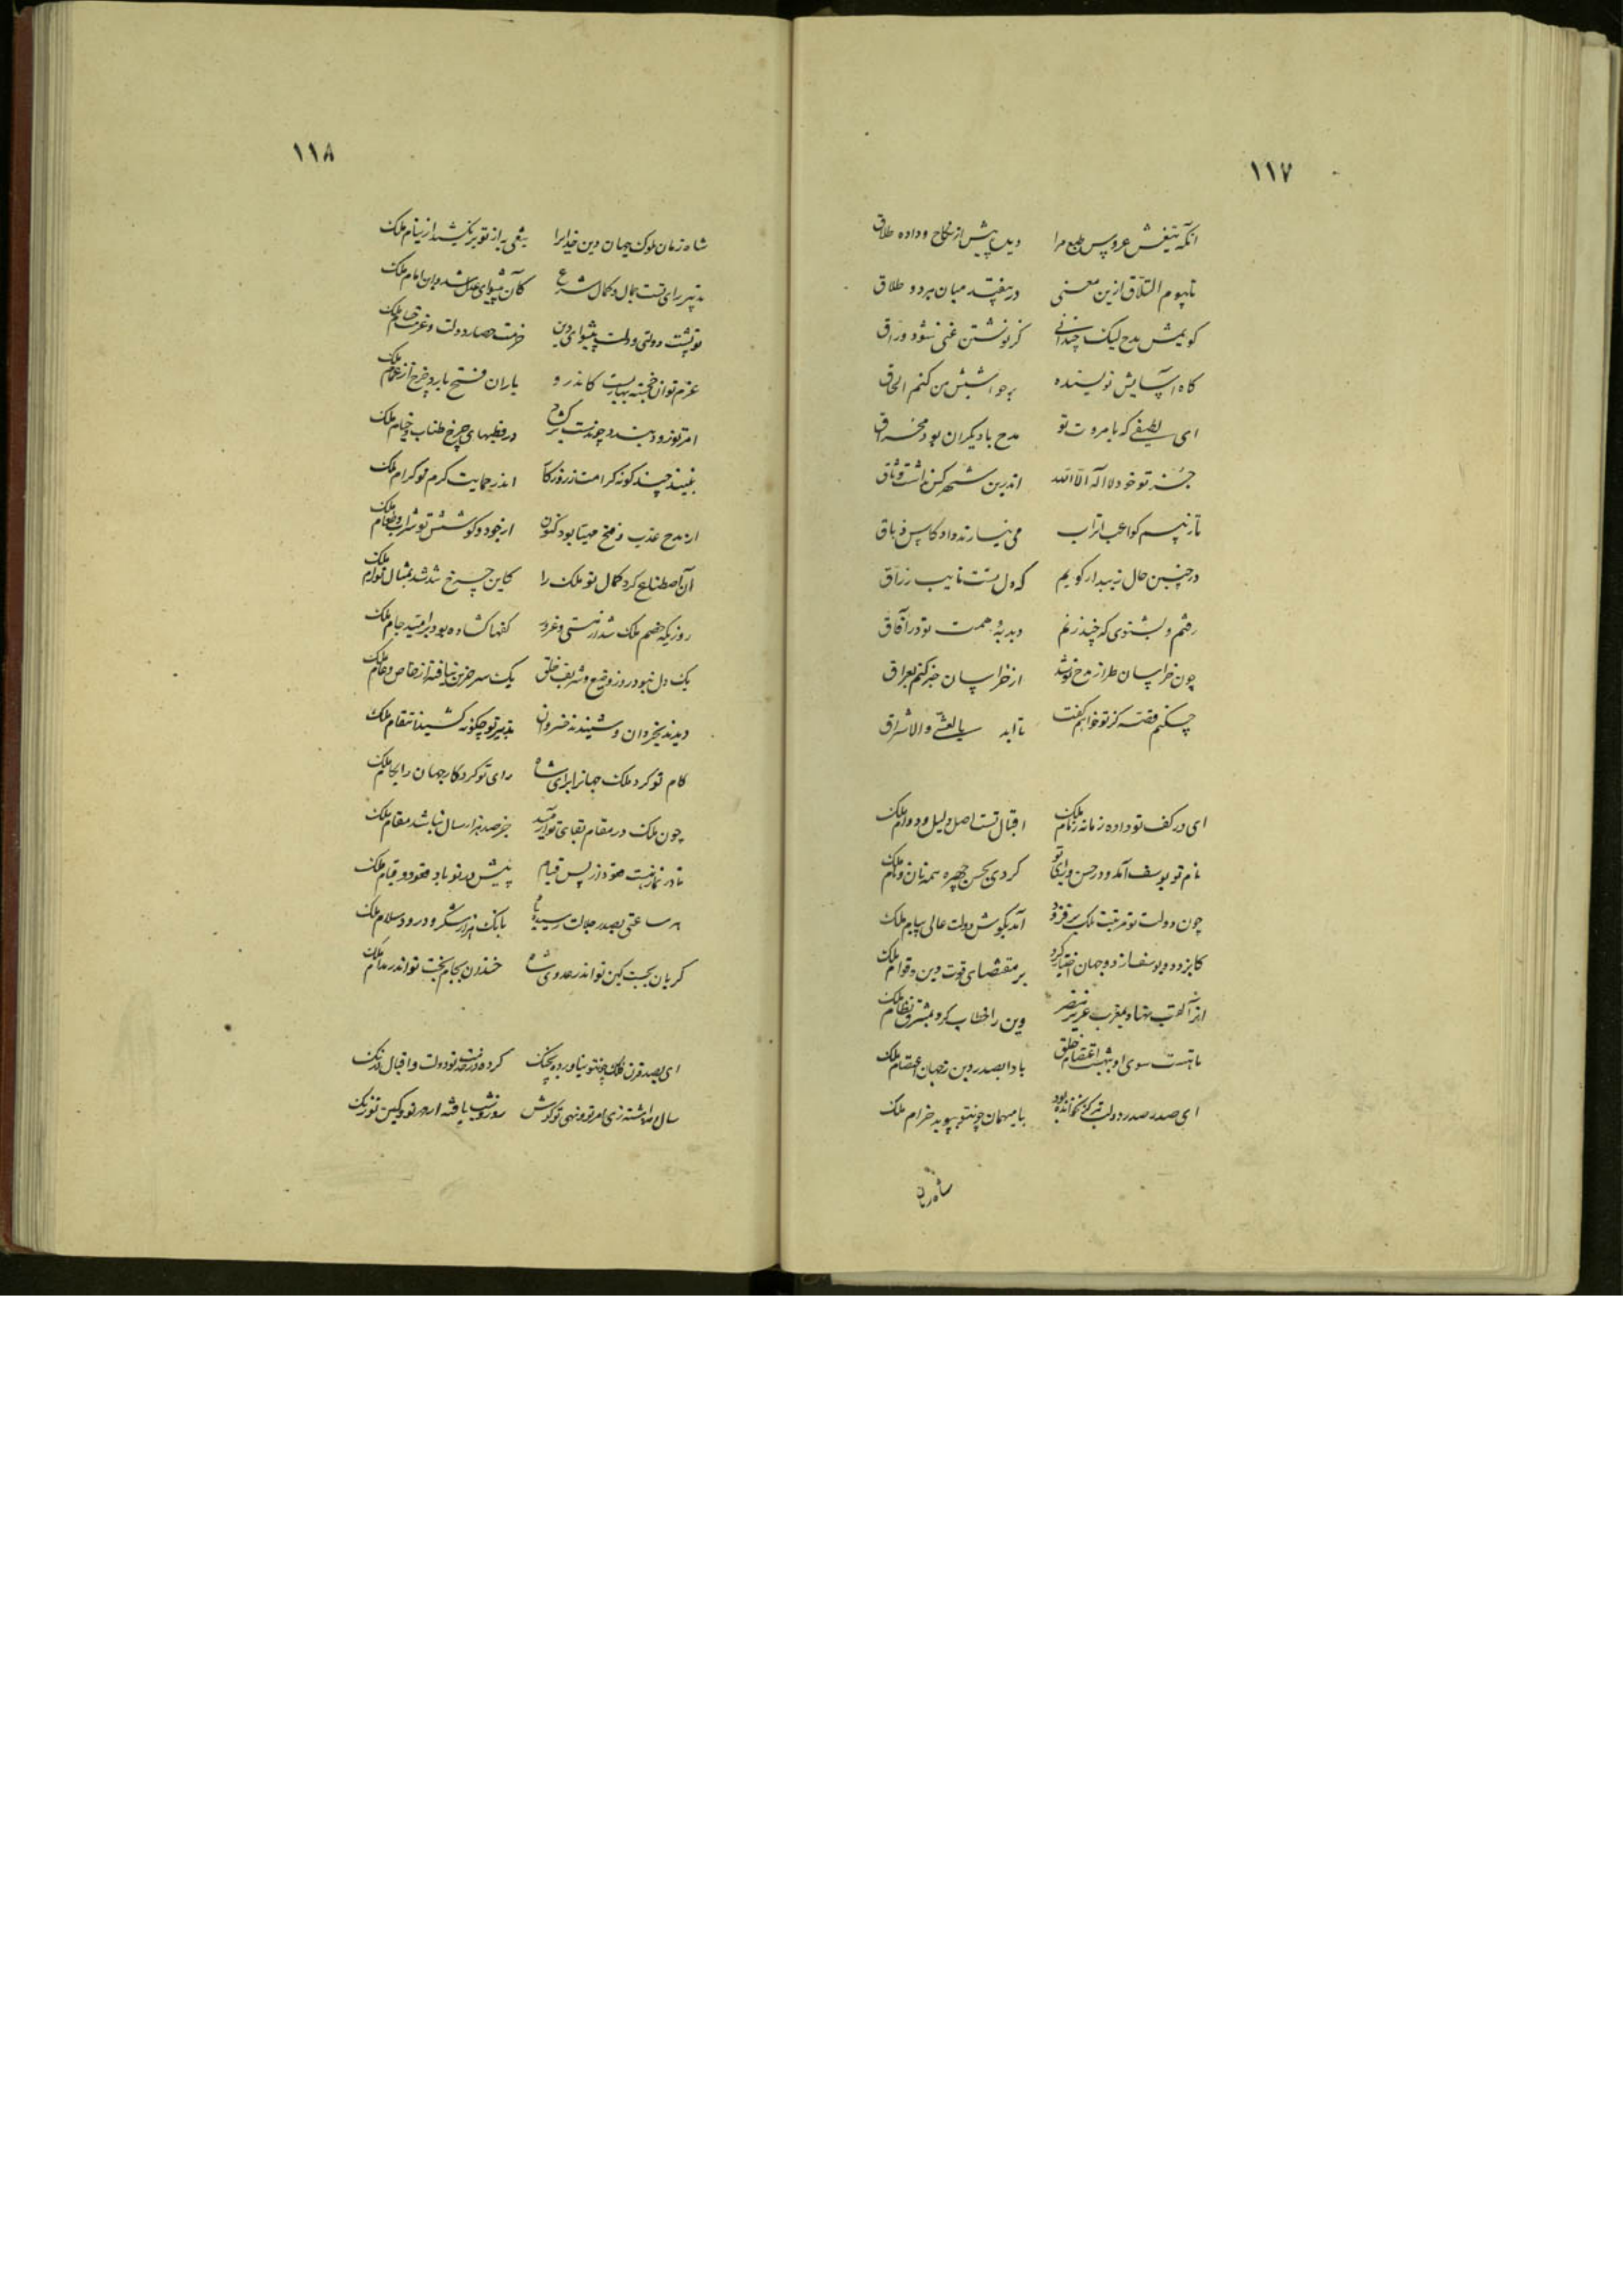 ١١٧
انکه تیغش عروس طبع مرا دیده پیش از نکاح و داده طلاق
تا بیوم التلاق ازین معنی در نیفتد میان هر دو طلاق
کویمش مدح لیک چندانی کز نوشتن غنی شود وراق
کاه آسایش نویسنده بر حواشیش من کنم الحاق
ای لطیفی که با مروت تو مدح با دیکران بود مخراق
جز تو خود لا اله الا الله اندرین شهر کس نداشت وثاق
تا ز بیم کواعب اتراب می نیارند داد کاس دهاق
در چنین حال زیبدار کویم که دل تست نایب رزاق
رفتم و بشنوی که چند زنم دبدبه همت تو در آفاق
چون خراسان طراز مدح تو شد از خراسان خبر کنم بعراق
چکنم قصه کز تو خواهم کفت تا ابد بالعشی والاشراق
ای در کف تو داده زمانه زمام ملک اقبال تست اصل و دلیل و دوام ملک
نام تو یوسف آمد و در حسن و رای تو کردی بحسن چهره همه نان و ملک
چون دولت تو مرتبت ملک برفزود آمد بکوش دولت عالی پیام ملک
کایزد دو یوسف از دو جهان اختیار کرد بر مقتضای قوت دین و قوام ملک
انرا لقب نهاد بمغرب عزیز مصر وین را خطاب کرد بمشرق نظام ملک
تا هست سوی او بشهت اعتصام خلق بادا بصدر دین ز جهان اعتصام ملک
ای صدر صدر دولت با میهمان چو تو بپوید خرام ملک
شاه زمان
١١٨
شاه زمان ملوک جهان دین خدایرا تیغی به از تو بر نکشد از نیام ملک
تدبیر رای تست جمال و کمال شرع کان پیشوای عدل شد و این امام ملک
تو پشت دولتی و دولت پیشوای دین حزمت حصار دولت و عزمت حسام ملک
عزم تو ان خجسته بهاریست کاندر و باران فتح بارد چرخ از غمام ملک
امر تو زود بندد چو نشست بر کشاد در قطبهای چرخ طناب خیام ملک
بیند چند کونه کرامت ز روزکار اندر حمایت کرم تو کرام ملک
از مدح عذب و مخ مهیا بود کنون از جود و کوشش تو شراب و طعام ملک
آن اصطناع کرد کمال تو ملک را کاین چرخ شد شد بمثال توام ملک
روزیکه خصم ملک شد از مستی و غرور کفها کشاده بود بر امید جام ملک
یک دل نبود در روز وضیع و شریف خلق یک سر حزین نیافته از خاص و عام ملک
دیدند بخردان و شنیدند خسروان تدبیر تو چکونه کشید انتقام ملک
کام تو کرد ملک جهانرا برای شاه رای تو کرد کار جهان را بکام ملک
چون ملک در مقام بقای تو آرمید جز صد هزار سال نباشد مقام ملک
تا در نماز هست قعود از پس قیام پیش در تو باد قعود و قیام ملک
هر ساعتی بصدر جلالت رسیده باد بانک هزار شکر و درود و سلام ملک
کریان بحبت کین تو اندر عدوی شاه خندان بجام بخت تو اندر مدام ملک
ای بصد قرن فلک چو تو نیاورده بچنک کرده در خدمت تو دولت و اقبال درنک
سال و مه داشته زی امر تو و نهی تو کوش روز و شب یافته از مهر تو و کین تو رنک